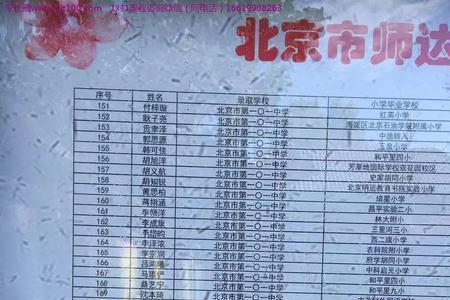 1对1课程咨询微信（同电话）16619908263
北京市师达
序号 姓名 录取学校 小学毕业学校
151 付梓璇 北京市第一〇一中学 红英小学
152 耿子尧 北京市第一〇一中学 海淀区北京石油学院附属小学
153 贡聿泽 北京市第一〇一中学 中途转入
154 郭思源 北京市第一〇一中学 玉泉小学
155 韩可佳 北京市第一〇一中学 和平里四小
156 胡旭洋 北京市第一〇一中学 芳草地国际学校双花园校区
157 胡义航 北京市第一〇一中学 史家胡同小学
158 胡知锐 北京市第一〇一中学 北京明远教育书院实验小学
159 黄思柏 北京市第一〇一中学 培星小学
160 蒋翎涵 北京市第一〇一中学 昌平实验二小
161 李烁洋 北京市第一〇一中学 林大附小
162 李成康 北京市第一〇一中学 三里河三小
163 北京市第一〇一中学 西二旗小学
164 李泽浓 北京市第一〇一中学 农科院附小
165 李宗润 北京市第一〇一中学 府学胡同小学
166 北京市第一〇一中学 中科启元小学
167 北京市第一〇一中学 和平里四小
168 桑艺宁 北京市第一〇一中学 和平里九小
169 沈本琦 北京市第一〇一中学